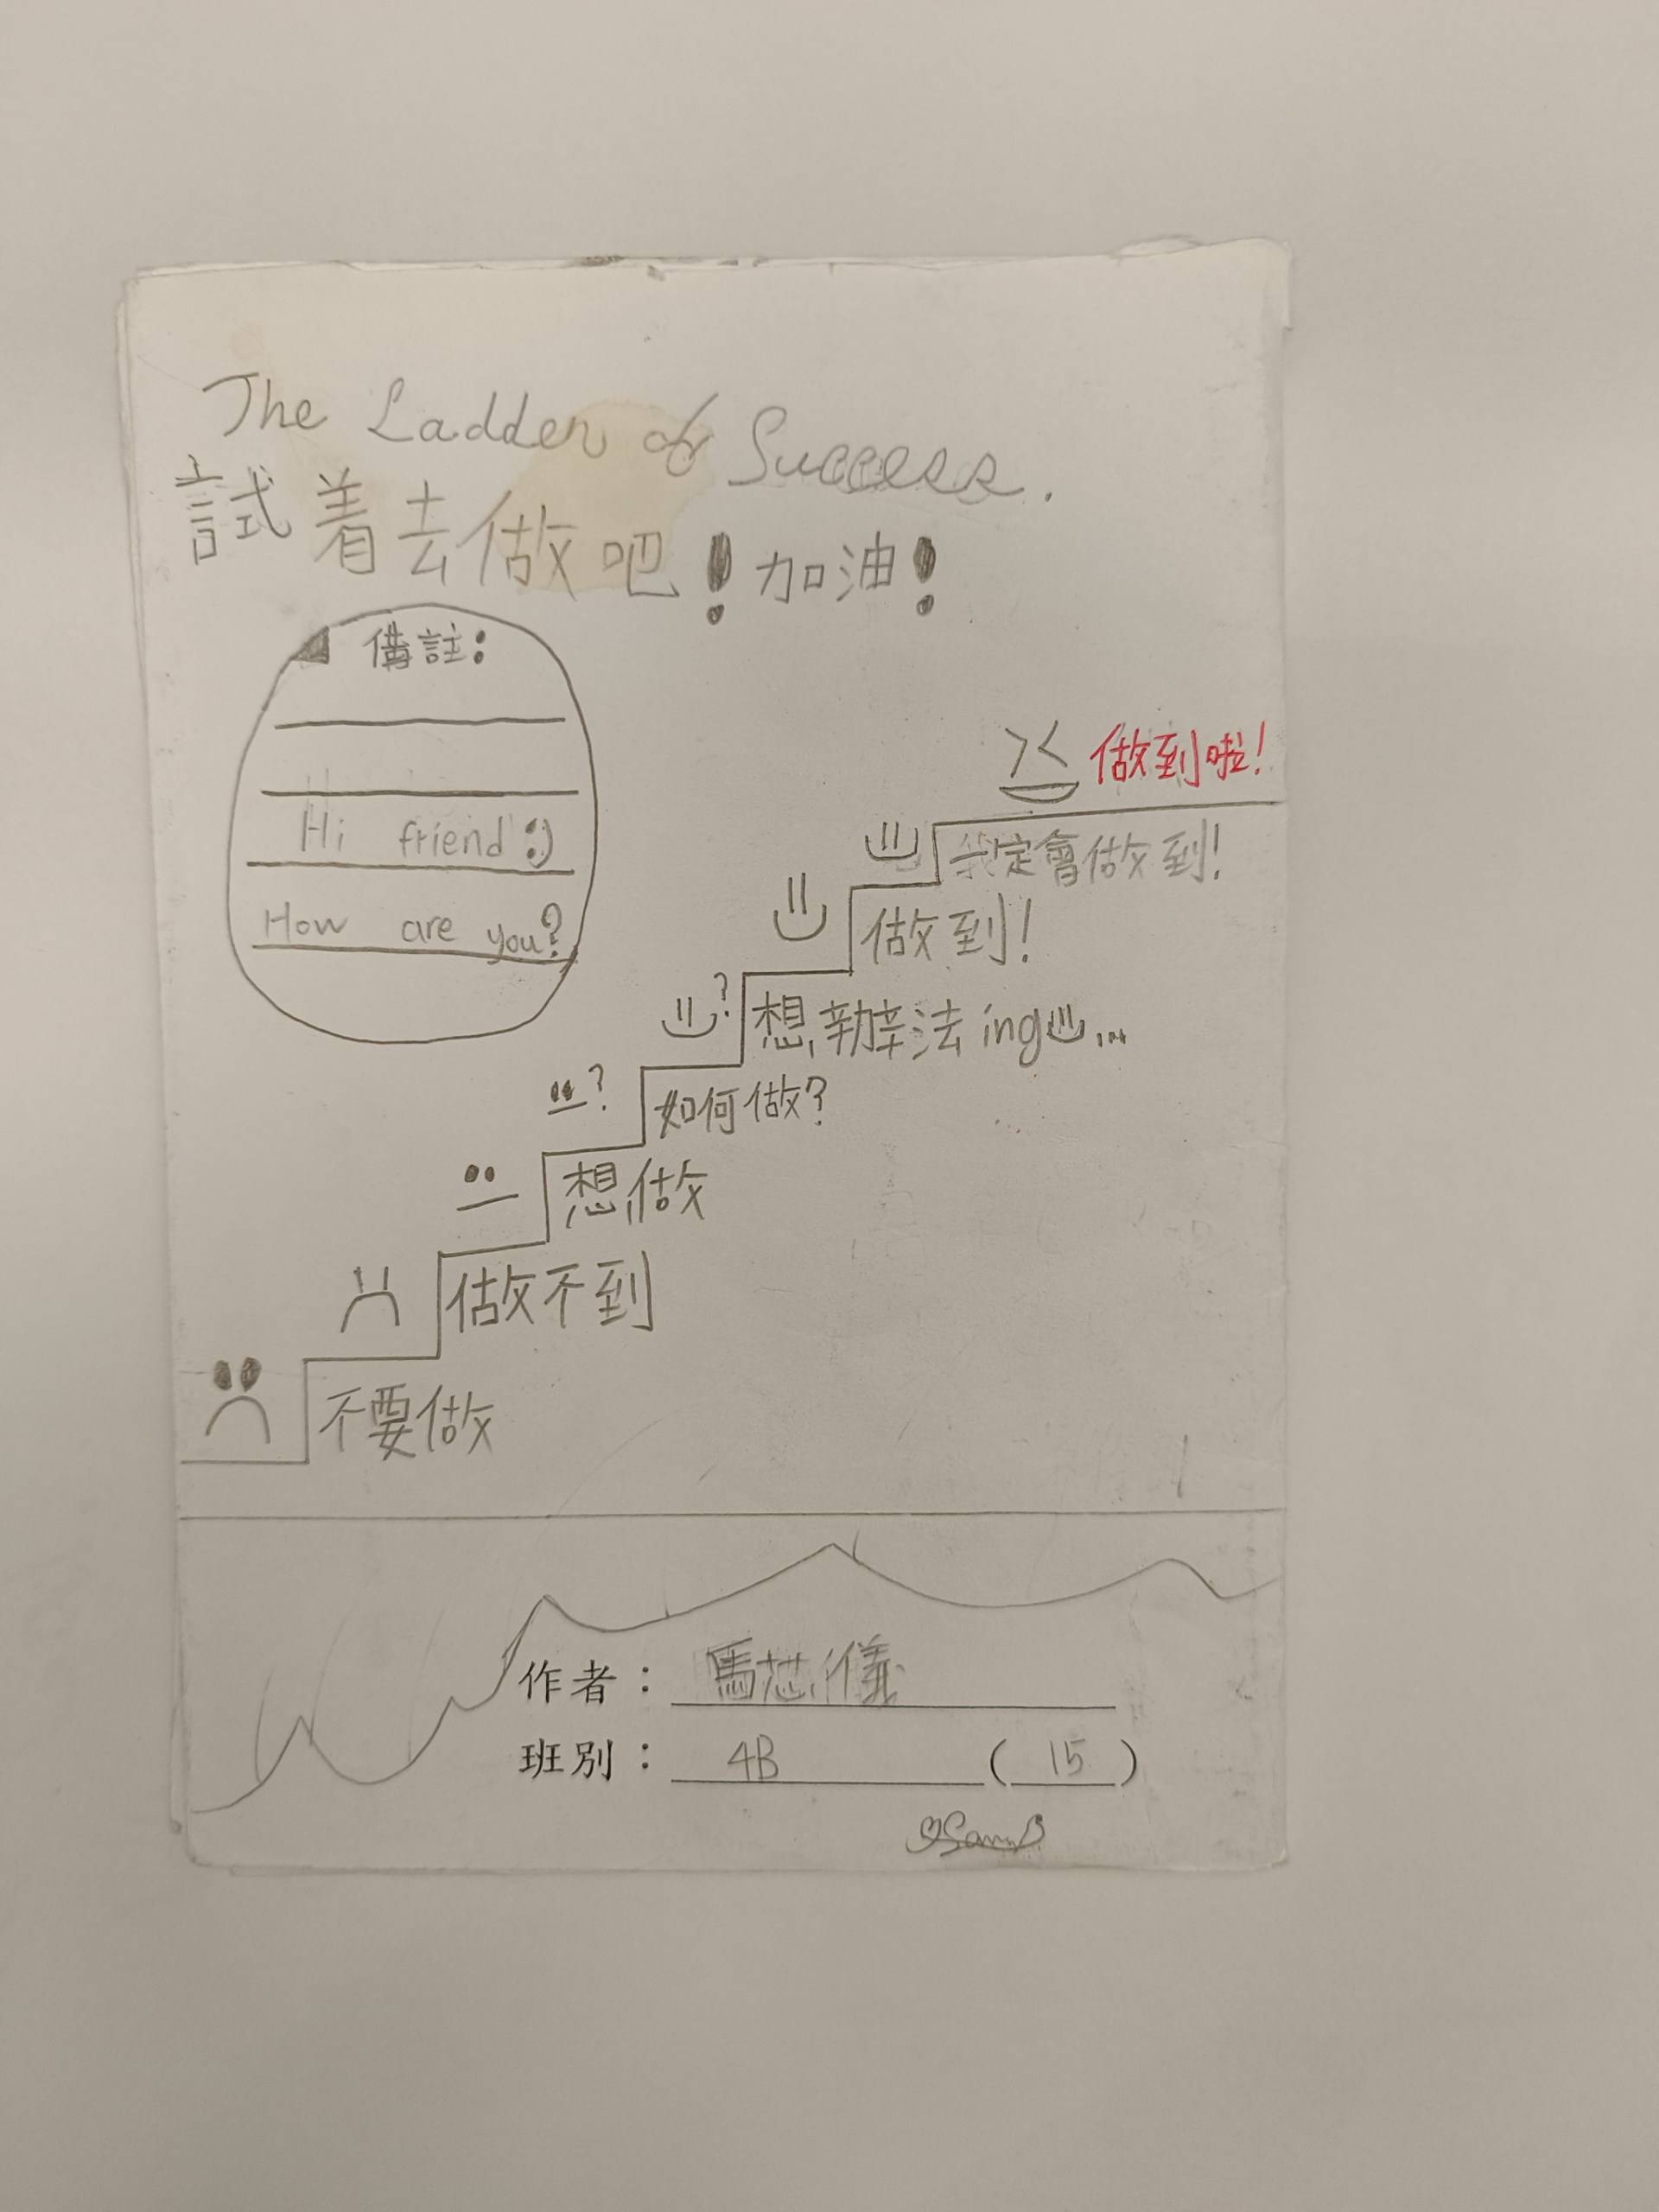 The Ladder of Success.
試着去做吧！加油！
備註：
Hi friend :)
How are you?
做到啦！
我定會做到！
做到！
想辦法ing...
如何做？
想做
做不到
不要做
作者：馬芯儀
班別：4B (15)